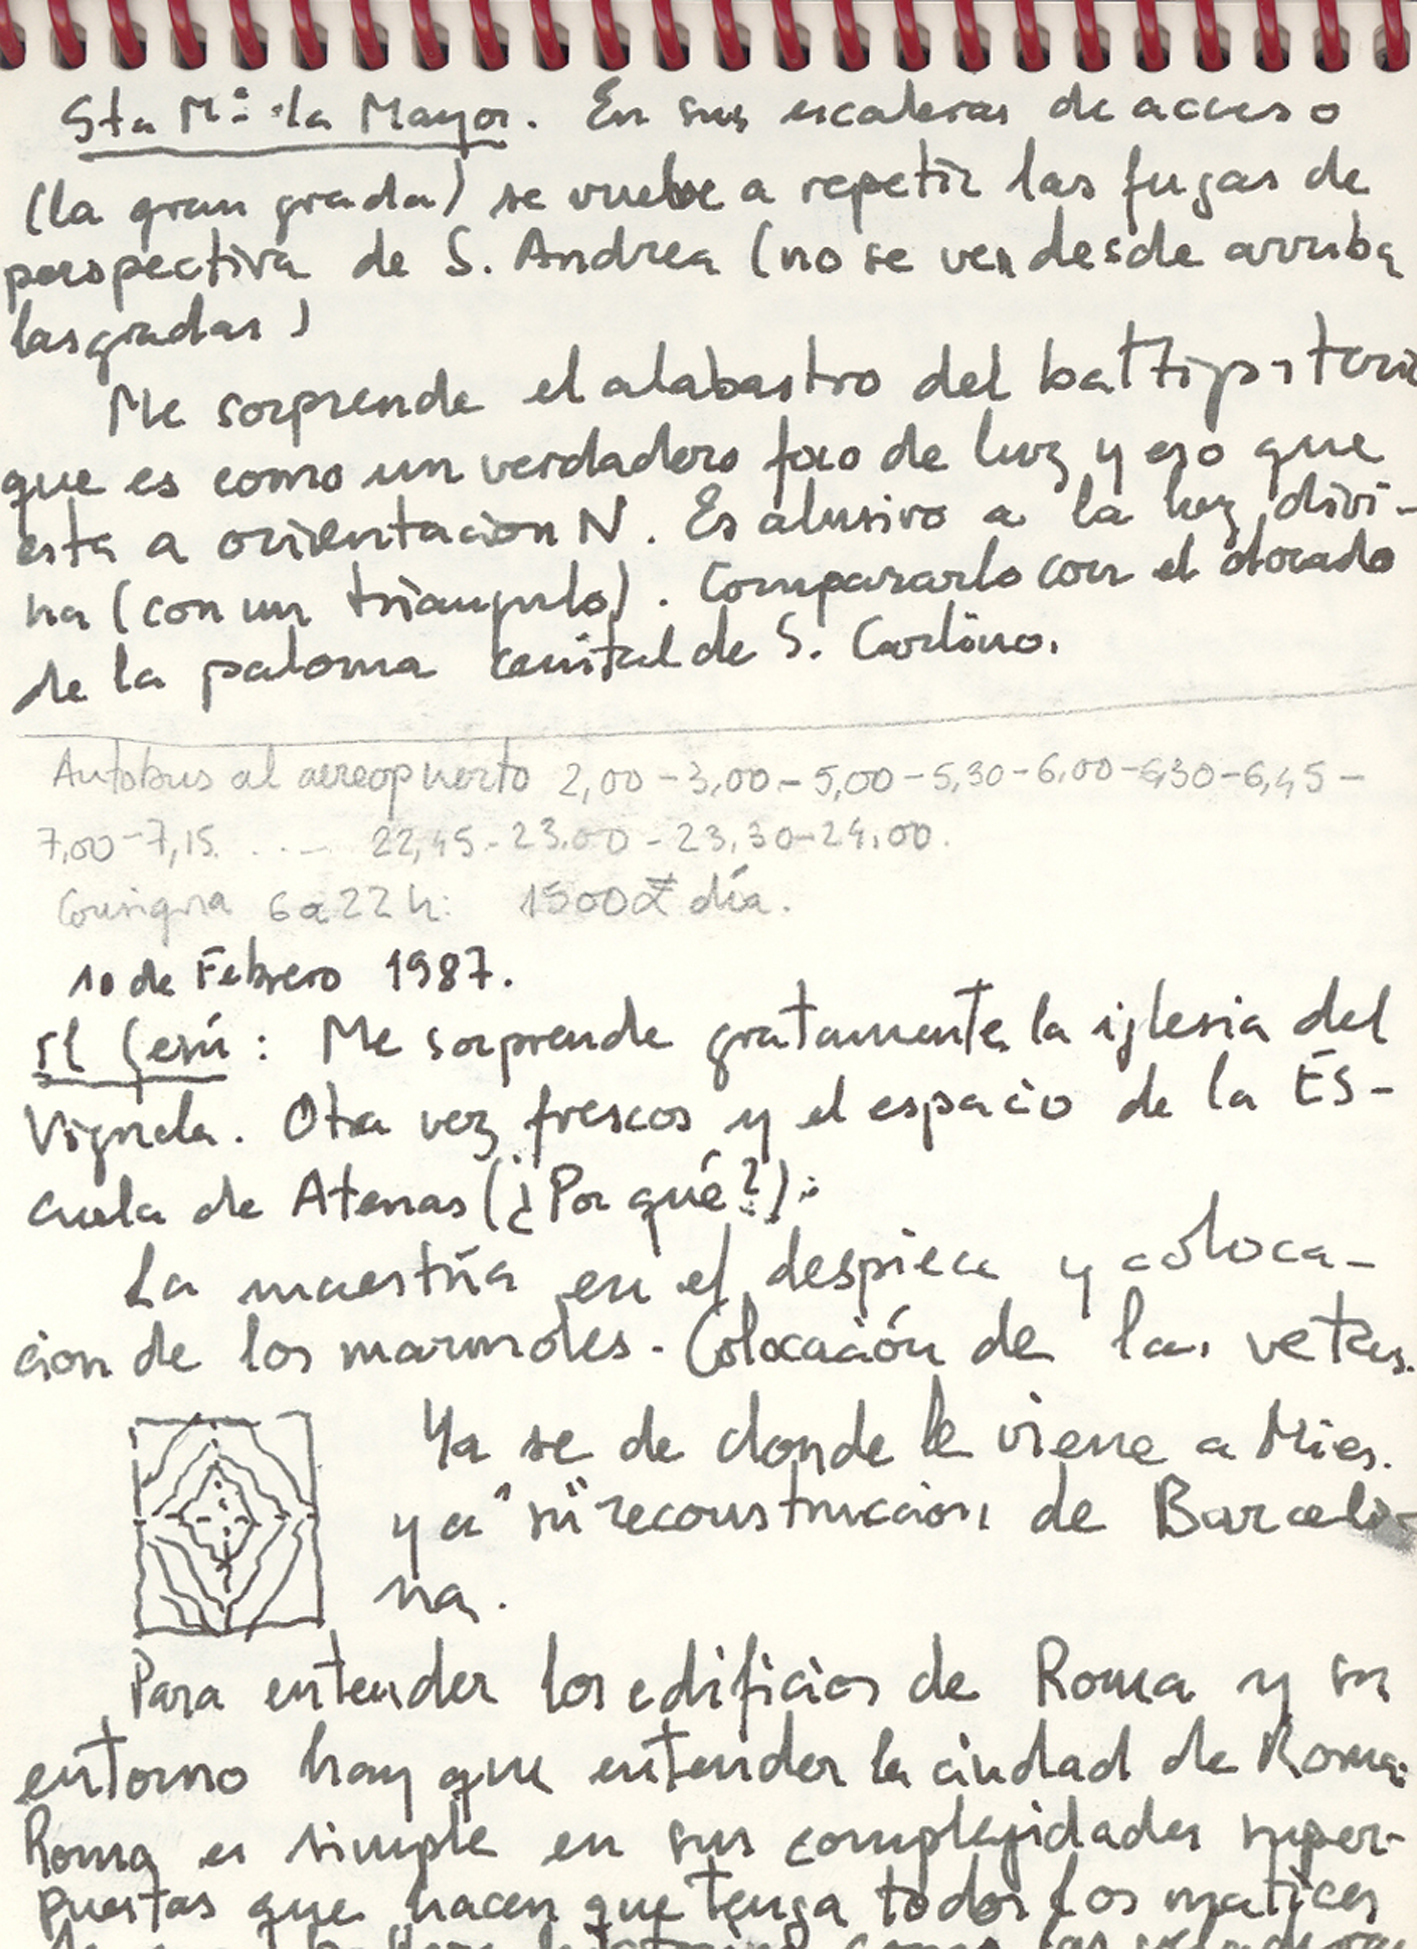 Sta Mª la Mayor. En sus escaleras de acceso
(la gran grada) se vuelve a repetir las fugas de
perspectiva de S. Andrea (no se ven desde arriba
las gradas)
Me sorprende el alabastro del
que es como un verdadero foco de luz y eso que
esta a orientacion N. Es alusivo a la luz divi-
na (con un triangulo). Compararlo con el dorado
de la paloma cenital de S. Carlino.
Autobus al aereopuerto 2,00-3,00-5,00-5,30-6,00-6,30-6,45-
7,00-7,15. ... 22,45-23.00-23,30-24,00.
Consigna 6 a 22 h: 1500₤ día.
10 de Febrero 1987.
Il Gesú: Me sorprende gratamente la iglesia del
Vignola. Otra vez frescos y el espacio de la ES-
cuela de Atenas (¿Por qué?).
La maestría en el despiece y coloca-
cion de los marmoles. Colocación de las vetas.
Ya se de donde le viene a Mies.
y a "su" reconstrucción de Barcelo-
na.
Para entender los edificios de Roma y su
entorno hay que entender la ciudad de Roma.
Roma es simple en sus complejidades super-
puestas que hacen que tenga todos los matices